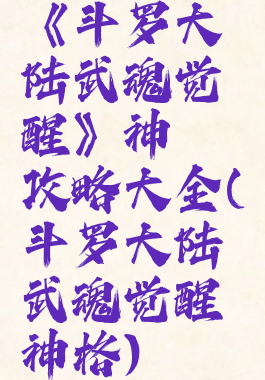 《斗罗大
陆武魂觉
醒》神
攻略大全(
斗罗大陆
武魂觉醒
神格)